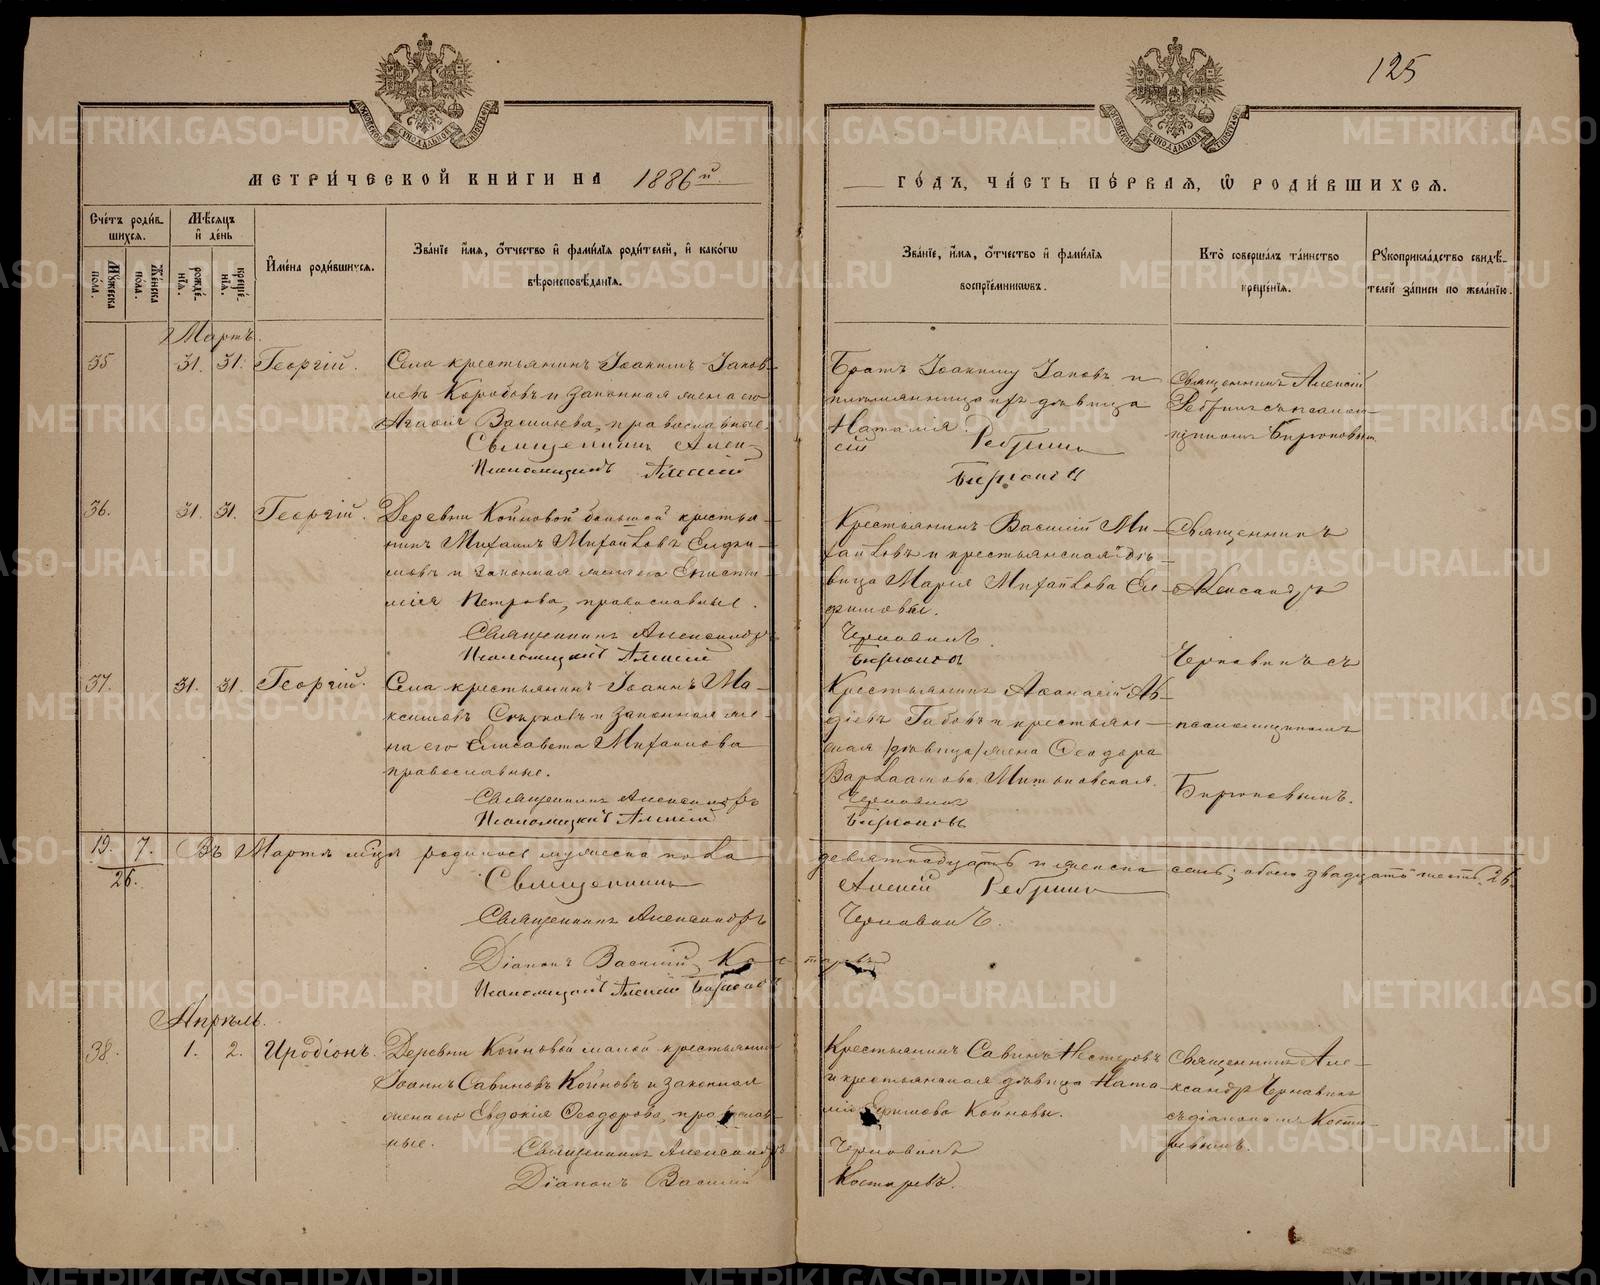 125
МЕТРИ́ЧЕСКОЙ КНИ́ГИ НА 1886й.
ГО́ДЪ, ЧА́СТЬ ПЕ́РВАЯ, Ѡ РОДИ́ВШИХСЯ.
Сче́тъ роди́в
шихся.
Мѣ́сяцъ
и де́нь
Му́жеска
по́ла.
Же́нска
по́ла.
рожде́
нія.
креще́
нія.
И҆мена̀ роди́вшихся.
Зва́ніе и҆́мя, ѻ҆́тчество и҆ фами́лія роди́телей, и҆ како́гѡ
вѣроисповѣ́данія.
Зва́ніе, и҆́мя, ѻ҆́тчество и҆ фами́лія
воспрїе́мникѡвъ.
Кто̀ соверша́лъ та́инство
креще́нія.
Рꙋкоприкла́дство свидѣ́-
телей за́писи по жела́нію.
Мартъ.
35 31. 31. Георгій.
Села крестьянинъ Іоакимъ Іаков-
левъ Коробовъ и законная жена его
Агафія Васильева, православные.
Священникъ Алек-
Псаломщикъ Алексій
Братъ Іоакиму Іаковъ и
племянница ихъ дѣвица
Наталія.
сій Ребринъ
Бирюковъ
Священникъ Алексій
Ребринъ съ псалом-
щикомъ Бирюковымъ
36. 31. 31. Георгій.
Деревни Койновой большой крестья-
нинъ Михаилъ Михайловъ Елфи-
мовъ и законная жена его Еписти-
мія Петрова, православные.
Священникъ Александръ
Псаломщикъ Алексій
Крестьянинъ Василій Ми-
хайловъ и крестьянская дѣ-
вица Марія Михайлова Ел-
фимовы.
Чернавинъ
Бирюковъ
Священникъ
Александръ
Чернавинъ съ
псаломщикомъ
Бирюковымъ.
37. 31. 31. Георгій.
Села крестьянинъ Іоаннъ Ма-
ксимовъ и законная же-
на его Елисавета Михаилова
православные.
Священникъ Александръ
Псаломщикъ Алексій
Крестьянинъ Аѳанасій Ав-
діевъ Габовъ и крестьян-
ская /дѣвица/ жена Ѳеодора
Варлаамова
Чернавинъ
Бирюковъ
19. 7. Въ Мартѣ м͠цѣ родилось мужеска пола девятнадцать и женска семь; обоего двадцать шесть. 26.
26.
Священникъ Алексій Ребринъ
Священникъ Александръ Чернавинъ.
Діаконъ Василій Костаревъ
Псаломщикъ Алексій Бирюковъ
Апрѣль.
38. 1. 2. Иродіонъ.
Деревни Койновой малой крестьянинъ
Іоаннъ Савиновъ Койновъ и законная
жена его Евдокія Ѳеодорова, православ-
ные.
Священникъ Александръ
Діаконъ Василій
Крестьянинъ Савинъ Нестеровъ
и крестьянская дѣвица Ната-
лія Ефимова Койновы.
Чернавинъ
Костаревъ.
Священникъ Але-
ксандръ Чернавинъ
съ діакономъ Коста-
ревымъ.
METRIKI.GASO-URAL.RU